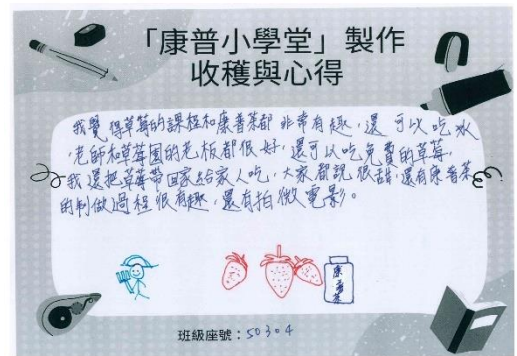 「康普小學堂」製作
收穫與心得
我覺得草莓的課程和康普茶都非常有趣,還可以吃冰
,老師和草莓園的老板都很好,還可以吃免費的草莓,
我還把草莓帶回家給家人吃,大家都說很甜,還有康普茶
的制做過程很有趣,還有拍微電影。
康普茶
班級座號:50304